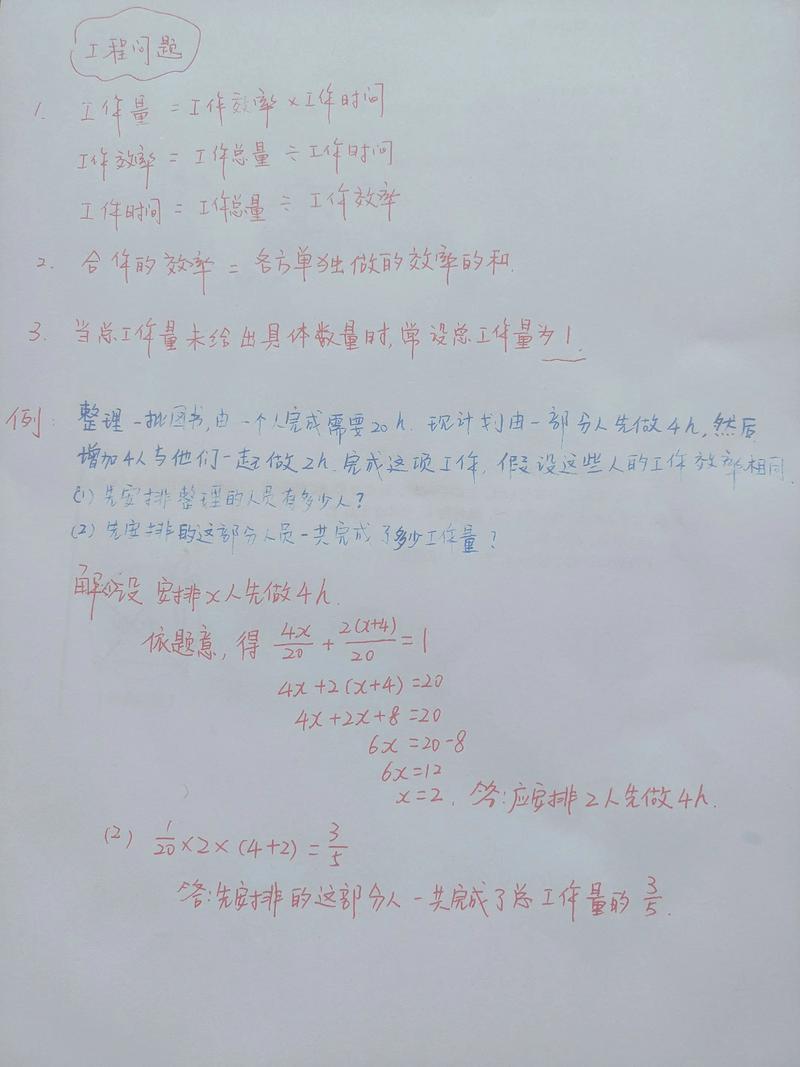 工程问题
1. 工作量 = 工作效率 × 工作时间
工作效率 = 工作总量 ÷ 工作时间
工作时间 = 工作总量 ÷ 工作效率
2. 合作的效率 = 各方单独做的效率的和.
3. 当总工作量未给出具体数量时,常设总工作量为1.
例: 整理一批图书,由一个人完成需要20h. 现计划由一部分人先做4h,然后
增加4人与他们一起做2h.完成这项工作,假设这些人的工作效率相同.
(1) 先安排整理的人员有多少人?
(2) 先安排的这部分人员一共完成了多少工作量?
解:(1)设安排x人先做4h.
依题意,得 4x/20 + 2(x+4)/20 = 1
4x+2(x+4)=20
4x+2x+8=20
6x=20-8
6x=12
x=2. 答:应安排2人先做4h.
(2) 1/20×2×(4+2)=3/5
答:先安排的这部分人一共完成了总工作量的3/5.